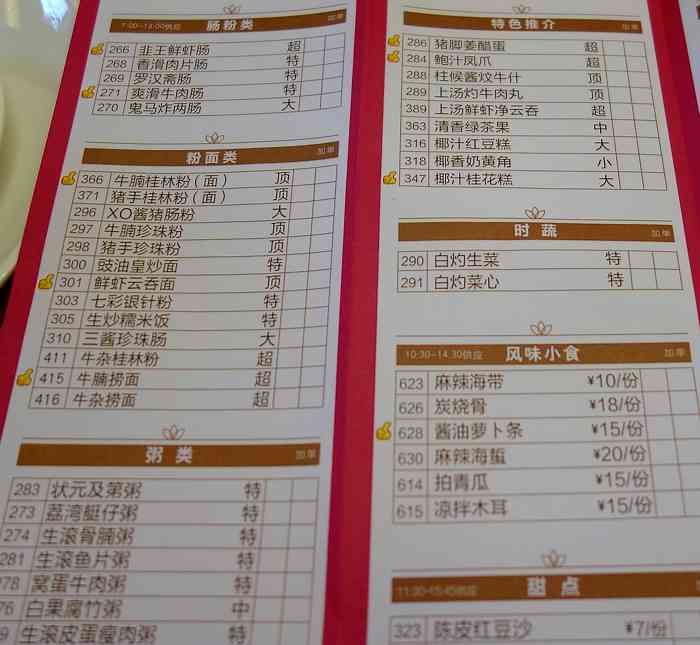 7:00-14:00供应 肠粉类 加单
266 韭王鲜虾肠 超
268 香滑肉片肠 特
269 罗汉斋肠 特
271 爽滑牛肉肠 特
270 鬼马炸两肠 大
粉面类 加单
366 牛腩桂林粉(面) 顶
371 猪手桂林粉(面) 顶
296 XO酱猪肠粉 大
297 牛腩珍珠粉 顶
298 猪手珍珠粉 顶
300 豉油皇炒面 特
301 鲜虾云吞面 顶
303 七彩银针粉 特
305 生炒糯米饭 特
310 三酱珍珠肠 大
411 牛杂桂林粉 超
415 牛腩捞面 超
416 牛杂捞面 超
粥类 加单
283 状元及第粥 特
273 荔湾艇仔粥 特
274 生滚骨腩粥 特
281 生滚鱼片粥 特
278 窝蛋牛肉粥 特
76 白果腐竹粥 中
9 生滚皮蛋瘦肉粥 特
特色推介 加单
286 猪脚姜醋蛋 超
284 鲍汁凤爪 超
288 柱候酱炆牛什 顶
289 上汤灼牛肉丸 顶
389 上汤鲜虾净云吞 超
363 清香绿茶果 中
316 椰汁红豆糕 大
318 椰香奶黄角 小
347 椰汁桂花糕 大
时蔬 加单
290 白灼生菜 特
291 白灼菜心 特
10:30-14:30供应 风味小食 加单
623 麻辣海带 ¥10/份
626 炭烧骨 ¥18/份
628 酱油萝卜条 ¥15/份
630 麻辣海蜇 ¥20/份
614 拍青瓜 ¥15/份
615 凉拌木耳 ¥15/份
11:30-15:45供应 甜点
323 陈皮红豆沙 ¥7/份